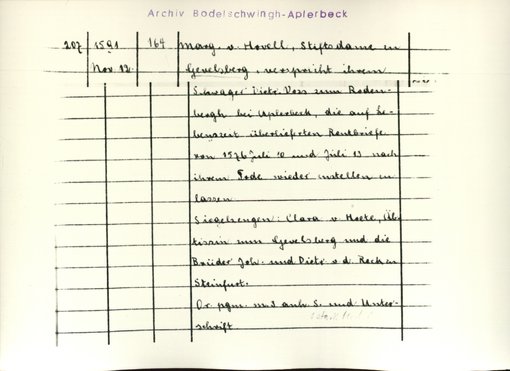 Archiv Bodelschwingh-Aplerbeck
207 1591 164 Marg. v. Hovell, Stiftsdame in
Nov. 12. Gevelsberg, verspricht ihrem
Schwager Dietr. Voss zum Roden-
bergh bei Aplerbeck, die auf Le-
benszeit überlieferten Rentbriefe
von 1576 Juli 10 und Juli 13 nach
ihrem Tode wieder zustellen zu
lassen
Siegelzeugen: Clara v. Hoete, Äb-
tissin zum Gevelsberg und die
Brüder Joh. und Dietr. v. d. Reck zu
Steinfurt.
Or. pgm. m. 3 anh. S. und Unter-
schrift